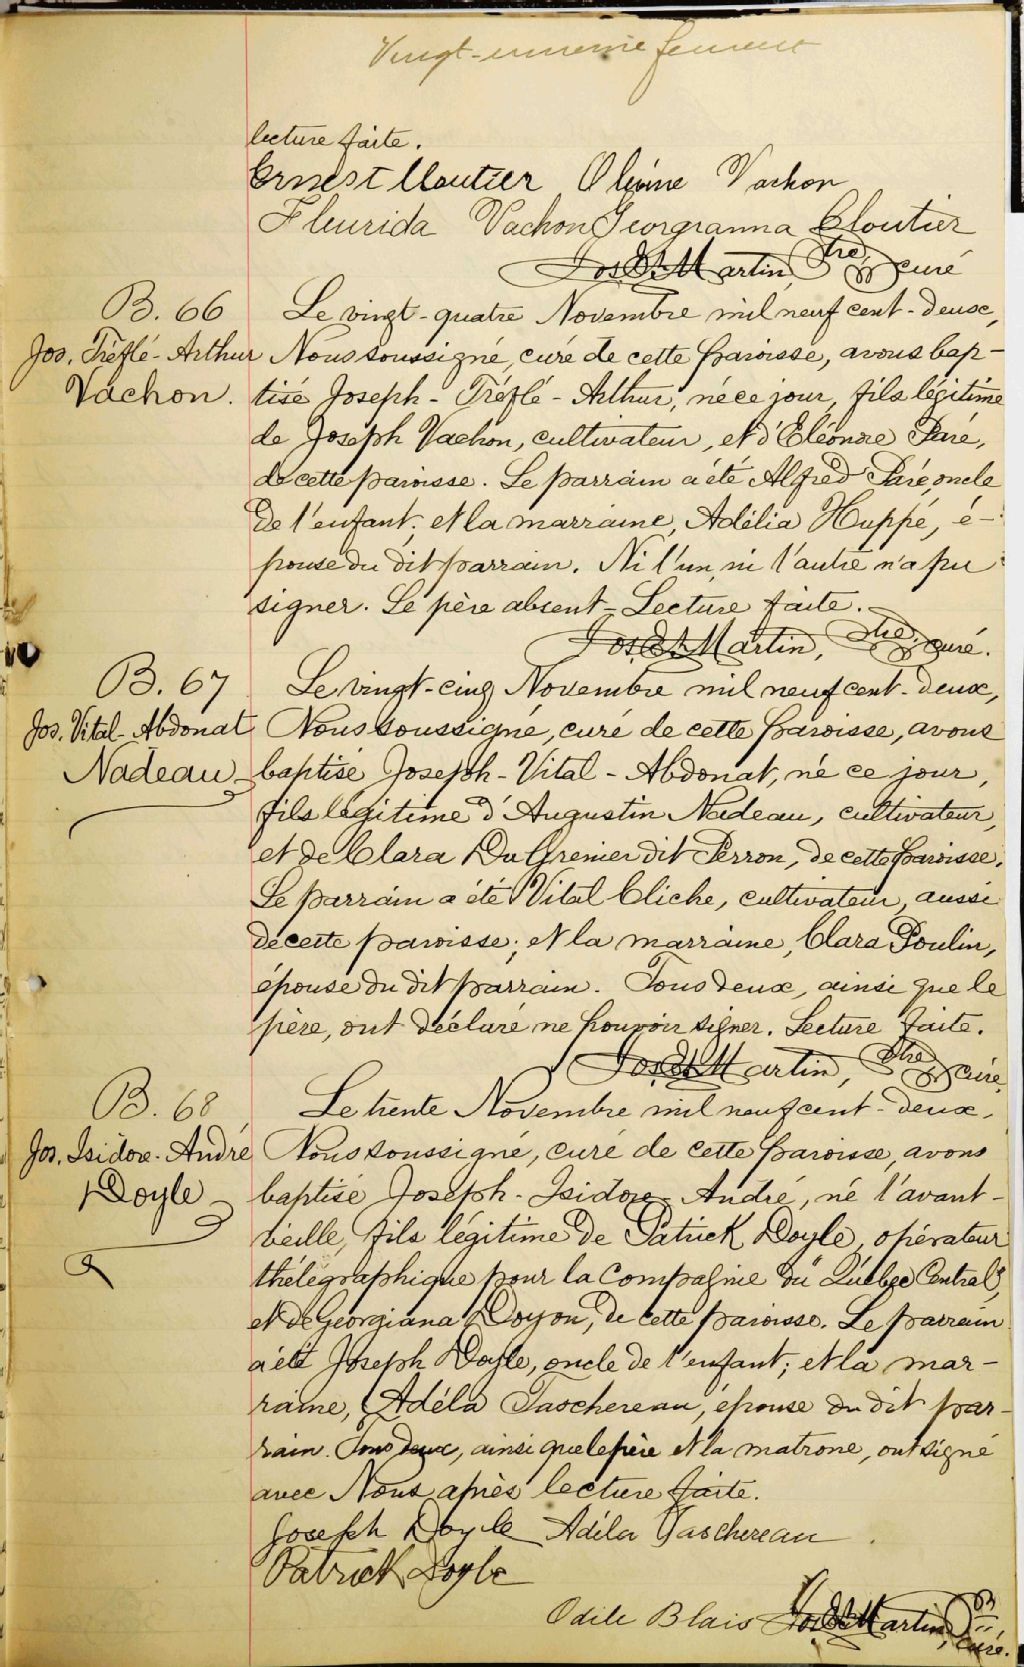 Vingt-unième feuillet
lecture faite.
Ernest Cloutier Olivine Vachon
Fleurida Vachon Georgianna Cloutier
Jos. Martin, Ptre, curé
B. 66
Jos. Tréflé-Arthur
Vachon.
Le vingt-quatre Novembre mil neuf cent-deux,
Nous soussigné, curé de cette paroisse, avons bap-
tisé Joseph-Tréflé-Arthur, né ce jour, fils légitime
de Joseph Vachon, cultivateur, et d'Eléonore Paré,
de cette paroisse. Le parrain a été Alfred Paré, oncle
de l'enfant; et la marraine, Adélia Huppé, é-
pouse du dit parrain. Ni l'un, ni l'autre n'a pu
signer. Le père absent_ Lecture faite.
Jos. Martin, Ptre, curé.
B. 67
Jos. Vital-Abdonat
Nadeau
Le vingt-cinq Novembre mil neuf cent-deux,
Nous soussigné, curé de cette paroisse, avons
baptisé Joseph-Vital-Abdonat, né ce jour,
fils légitime d'Augustin Nadeau, cultivateur,
et de Clara DuGrenier dit Perron, de cette paroisse.
Le parrain a été Vital Cliche, cultivateur, aussi
de cette paroisse; et la marraine, Clara Poulin,
épouse du dit parrain. Tous deux, ainsi que le
père, ont déclaré ne pouvoir signer. Lecture faite.
Jos. Martin, Ptre, curé
B. 68
Jos. Isidore-André
Doyle
Le trente Novembre mil neuf cent-deux,
Nous soussigné, curé de cette paroisse, avons
baptisé Joseph-Isidore-André, né l'avant-
veille, fils légitime de Patrick Doyle, opérateur
thélégraphique pour la Compagnie du "Québec Central",
et de Georgiana Doyon, de cette paroisse. Le parrain
a été Joseph Doyle, oncle de l'enfant; et la mar-
raine, Adéla Taschereau, épouse du dit par-
rain. Tous deux, ainsi que le père et la matrone, ont signé
avec Nous après lecture faite.
Joseph Doyle Adéla Taschereau
Patrick Doyle
Odile Blais Jos. Martin, Ptre, curé.